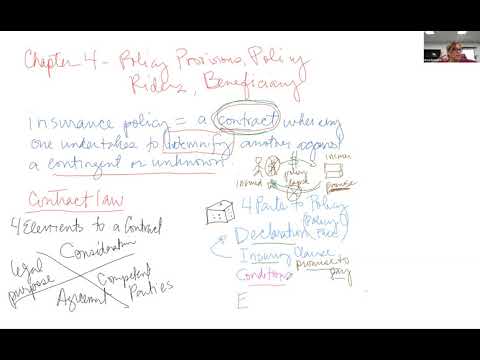 Chapter 4 - Policy Provisions, Policy
Riders, Beneficiary
insurance policy = a contract whereby
one undertakes to indemnify another against
a contingent or unknown.
insured
policy
insurer
promise
Contract law
4 Elements to a Contract
Consideration
Legal
purpose
Competent
Parties
Agreement
4 Parts to Policy
Declaration (Policy
Face)
Insuring Clause
promise to
pay
Conditions
E